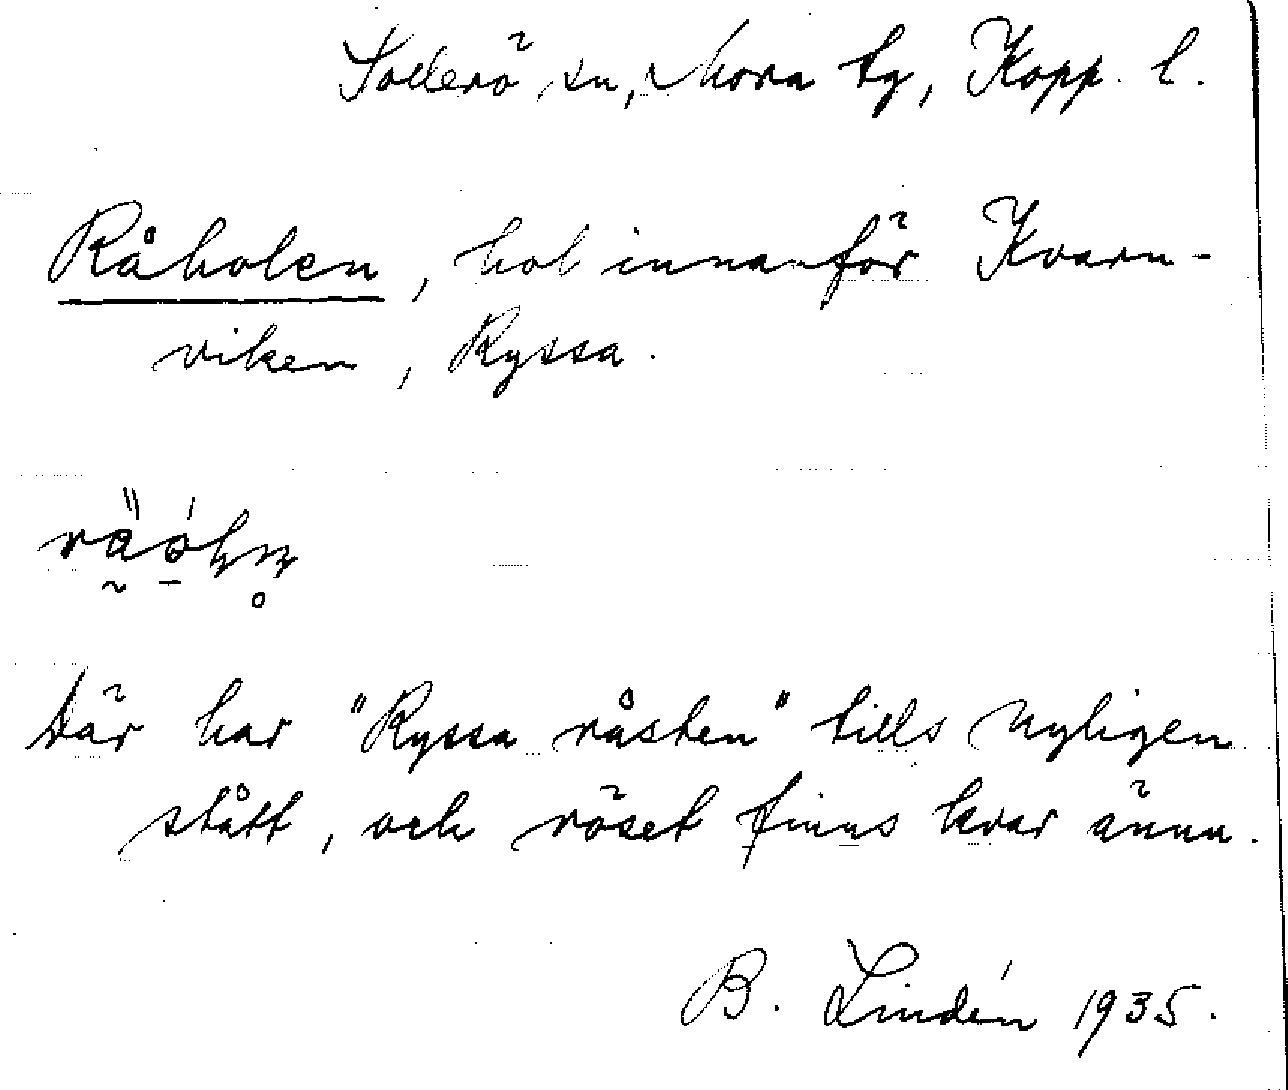 Sollerö sn, Mora tg, Kopp. l.
Råholen, hol innanför Kvarn-
viken, Ryssa.
Där har "Ryssa råsten" tills nyligen
stått, och röset finns kvar ännu.
B. Lindén 1935.